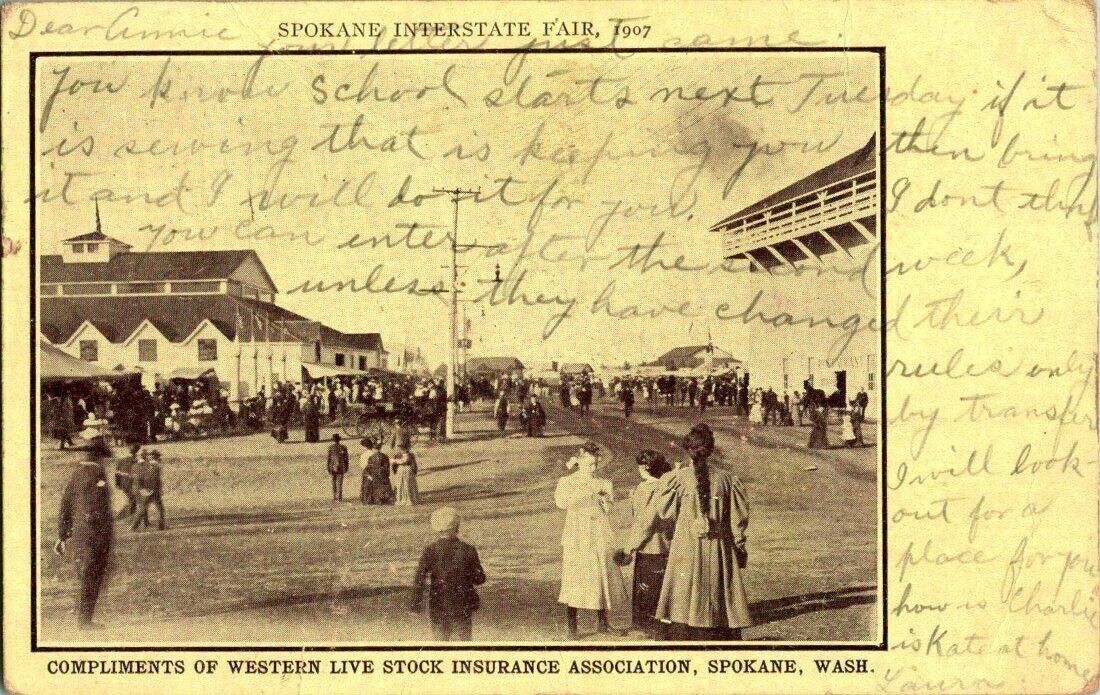 SPOKANE INTERSTATE FAIR, 1907
Dear Annie
your letter just came.
You know School starts next Tuesday if it
is sewing that is keeping you then bring
it and I will do it for you. I dont think
you can enter after the second week,
unless they have changed their
rules only
by transfer
I will look-
out for a
place for you
how is Charlie
is Kate at home
Laura.
COMPLIMENTS OF WESTERN LIVE STOCK INSURANCE ASSOCIATION, SPOKANE, WASH.